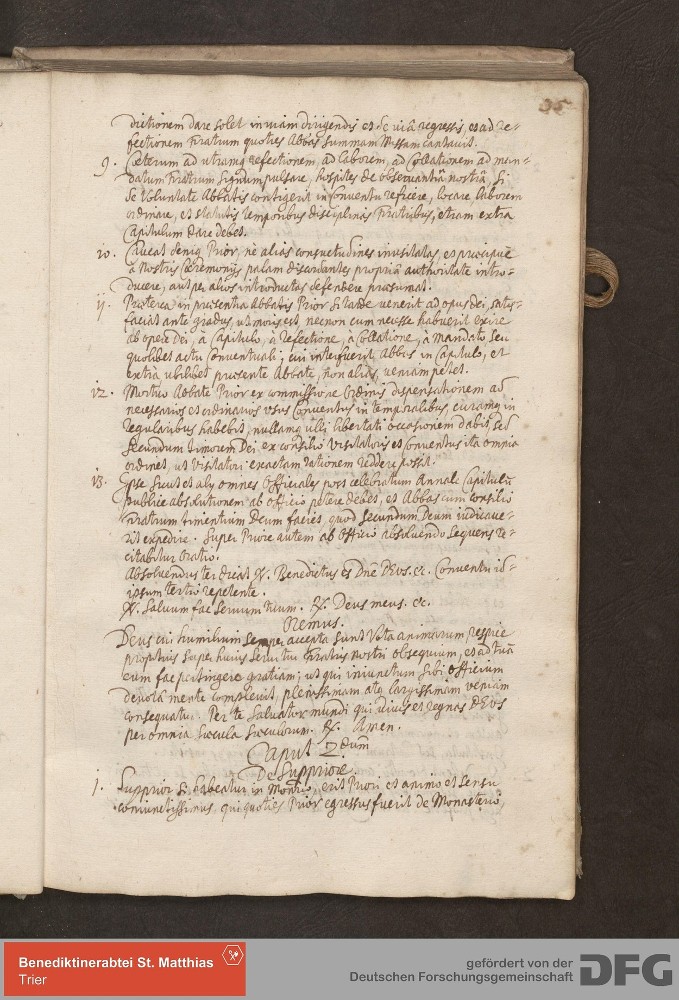 35
dictionem dare solet in viam dirigendis et de via regressis, et ad re-
fectionem Fratrum quoties Abbas summam Missam cantavit.
9. Cæterum ad utramq refectionem, ad laborem, ad Collationem ad man-
datum Fratrum signum pulsare, hospites de observantiâ nostrâ, si
de voluntate Abbatis contigerit in Conventu reficere, locare, laborem
ordinare, et statutis temporibus disciplinas Fratribus, etiam extra
Capitulum dare debet.
10. Caveat deniq Prior, ne alias consuetudines inusitatas, et præcipuè
a nostris Cæremonijs palam discordantes propriâ authoritate intro-
ducere, aut per alios introductas defendere præsumat.
11. Præterea in præsentia Abbatis Prior si tarde venerit ad opus dei, satis-
faciat ante gradus, ut moris est, necnon cum necesse habuerit exire
ab opere Dei, à Capitulo, à refectione, a Collatione, à mandato seu
quolibet actu Conventuali, cui interfuerit Abbas in Capitulo, et
extrà ubilibet præsente Abbate, non alias, veniam petet.
12. Mortuo Abbate Prior ex commissione Ordinis dispensationem ad
necessarios et ordinarios usus Conventus in temporalibus, curamq in
regularibus habebit, nullamq ulli libertati occasionem dabit, sed
secundum timorem Dei ex consilio Visitatoris et Conventus ita omnia
ordinet, ut Visitatori exactam rationem reddere possit.
13. Ipse sicut et alij omnes Officiales post celebratum Annale Capitulũ
publice absolutionem ab officio petere debet, et Abbas cum consilio
Fratrum timentium Deum faciet, quod secundum Deum iudicave-
rit expedire. Super Priore autem ab Officio absolvendo sequens re-
citabitur Oratio.
Absolvendus ter dicat ℣. Benedictus es Dñe Deus. &c. Conventu id-
ipsum tertio repetente.
℣. Salvum fac servum tuum. ℟. Deus meus. &c.
Oremus.
Deus cui humilium semper accepta sunt Vota animarum respice
propitius super huius servi tui Fratris nostri obsequium, et ad tuã
eum fac pertingere gratiam; ut qui iniunctum sibi officium
devotâ mente complevit, plenissimam atq largissimam veniam
consequatur. Per te Salvator mundi qui vivis et regnas DEUS
per omnia sæcula sæculorum. ℟. Amen.
Caput 2dum
De Suppriore.
1. Supprior si habeatur in Monrio, erit Priori et animo et sensu
coniunctissimus, qui quoties Prior egressus fuerit de Monasterio,
Benediktinerabtei St. Matthias
Trier
gefördert von der
Deutschen Forschungsgemeinschaft
DFG